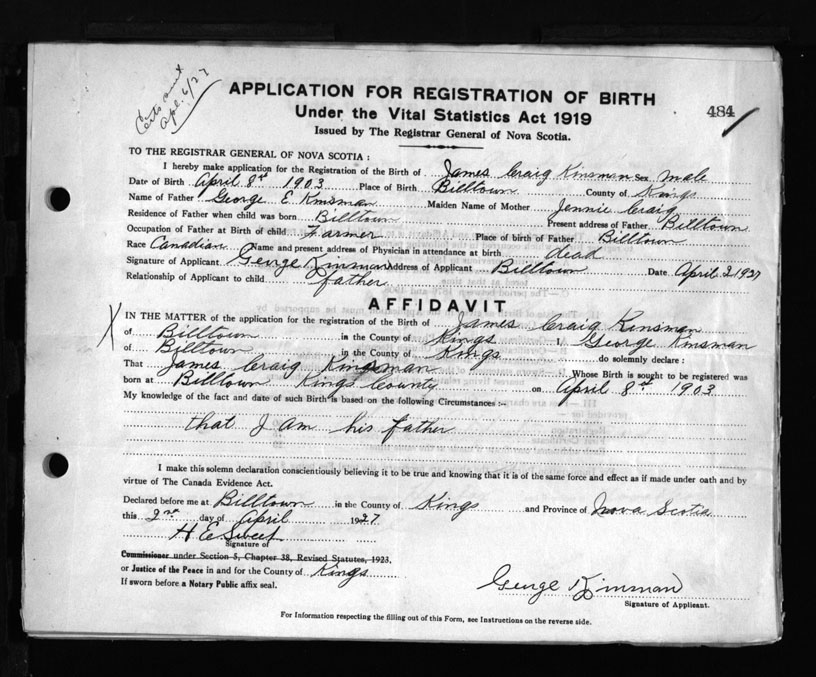 Certs sent
Apl. 6/27
APPLICATION FOR REGISTRATION OF BIRTH
484
Under the Vital Statistics Act 1919
Issued by The Registrar General of Nova Scotia.
TO THE REGISTRAR GENERAL OF NOVA SCOTIA :
I hereby make application for the Registration of the Birth of James Craig Kinsman Sex male
Date of Birth April 8th 1903 Place of Birth Billtown County of Kings
Name of Father George E Kinsman Maiden Name of Mother Jennie Craig
Residence of Father when child was born Billtown Present address of Father Billtown
Occupation of Father at Birth of child Farmer Place of birth of Father Billtown
Race Canadian Name and present address of Physician in attendance at birth dead
Signature of Applicant George Kinsman Address of Applicant Billtown Date April 2 1927
Relationship of Applicant to child father
AFFIDAVIT
X
IN THE MATTER of the application for the registration of the Birth of James Craig Kinsman
of Billtown in the County of Kings I, George Kinsman
of Billtown in the County of Kings do solemnly declare :
That James Craig Kinsman Whose Birth is sought to be registered was
born at Billtown Kings County on April 8th 1903
My knowledge of the fact and date of such Birth is based on the following Circumstances :-
that I am his father
I make this solemn declaration conscientiously believing it to be true and knowing that it is of the same force and effect as if made under oath and by
virtue of The Canada Evidence Act.
Declared before me at Billtown in the County of Kings and Province of Nova Scotia
this 2nd day of April 1927
H E Sweet
Signature of
Commissioner under Section 5, Chapter 38, Revised Statutes, 1923.
or Justice of the Peace in and for the County of Kings
If sworn before a Notary Public affix seal.
George Kinsman
Signature of Applicant.
For Information respecting the filling out of this Form, see Instructions on the reverse side.